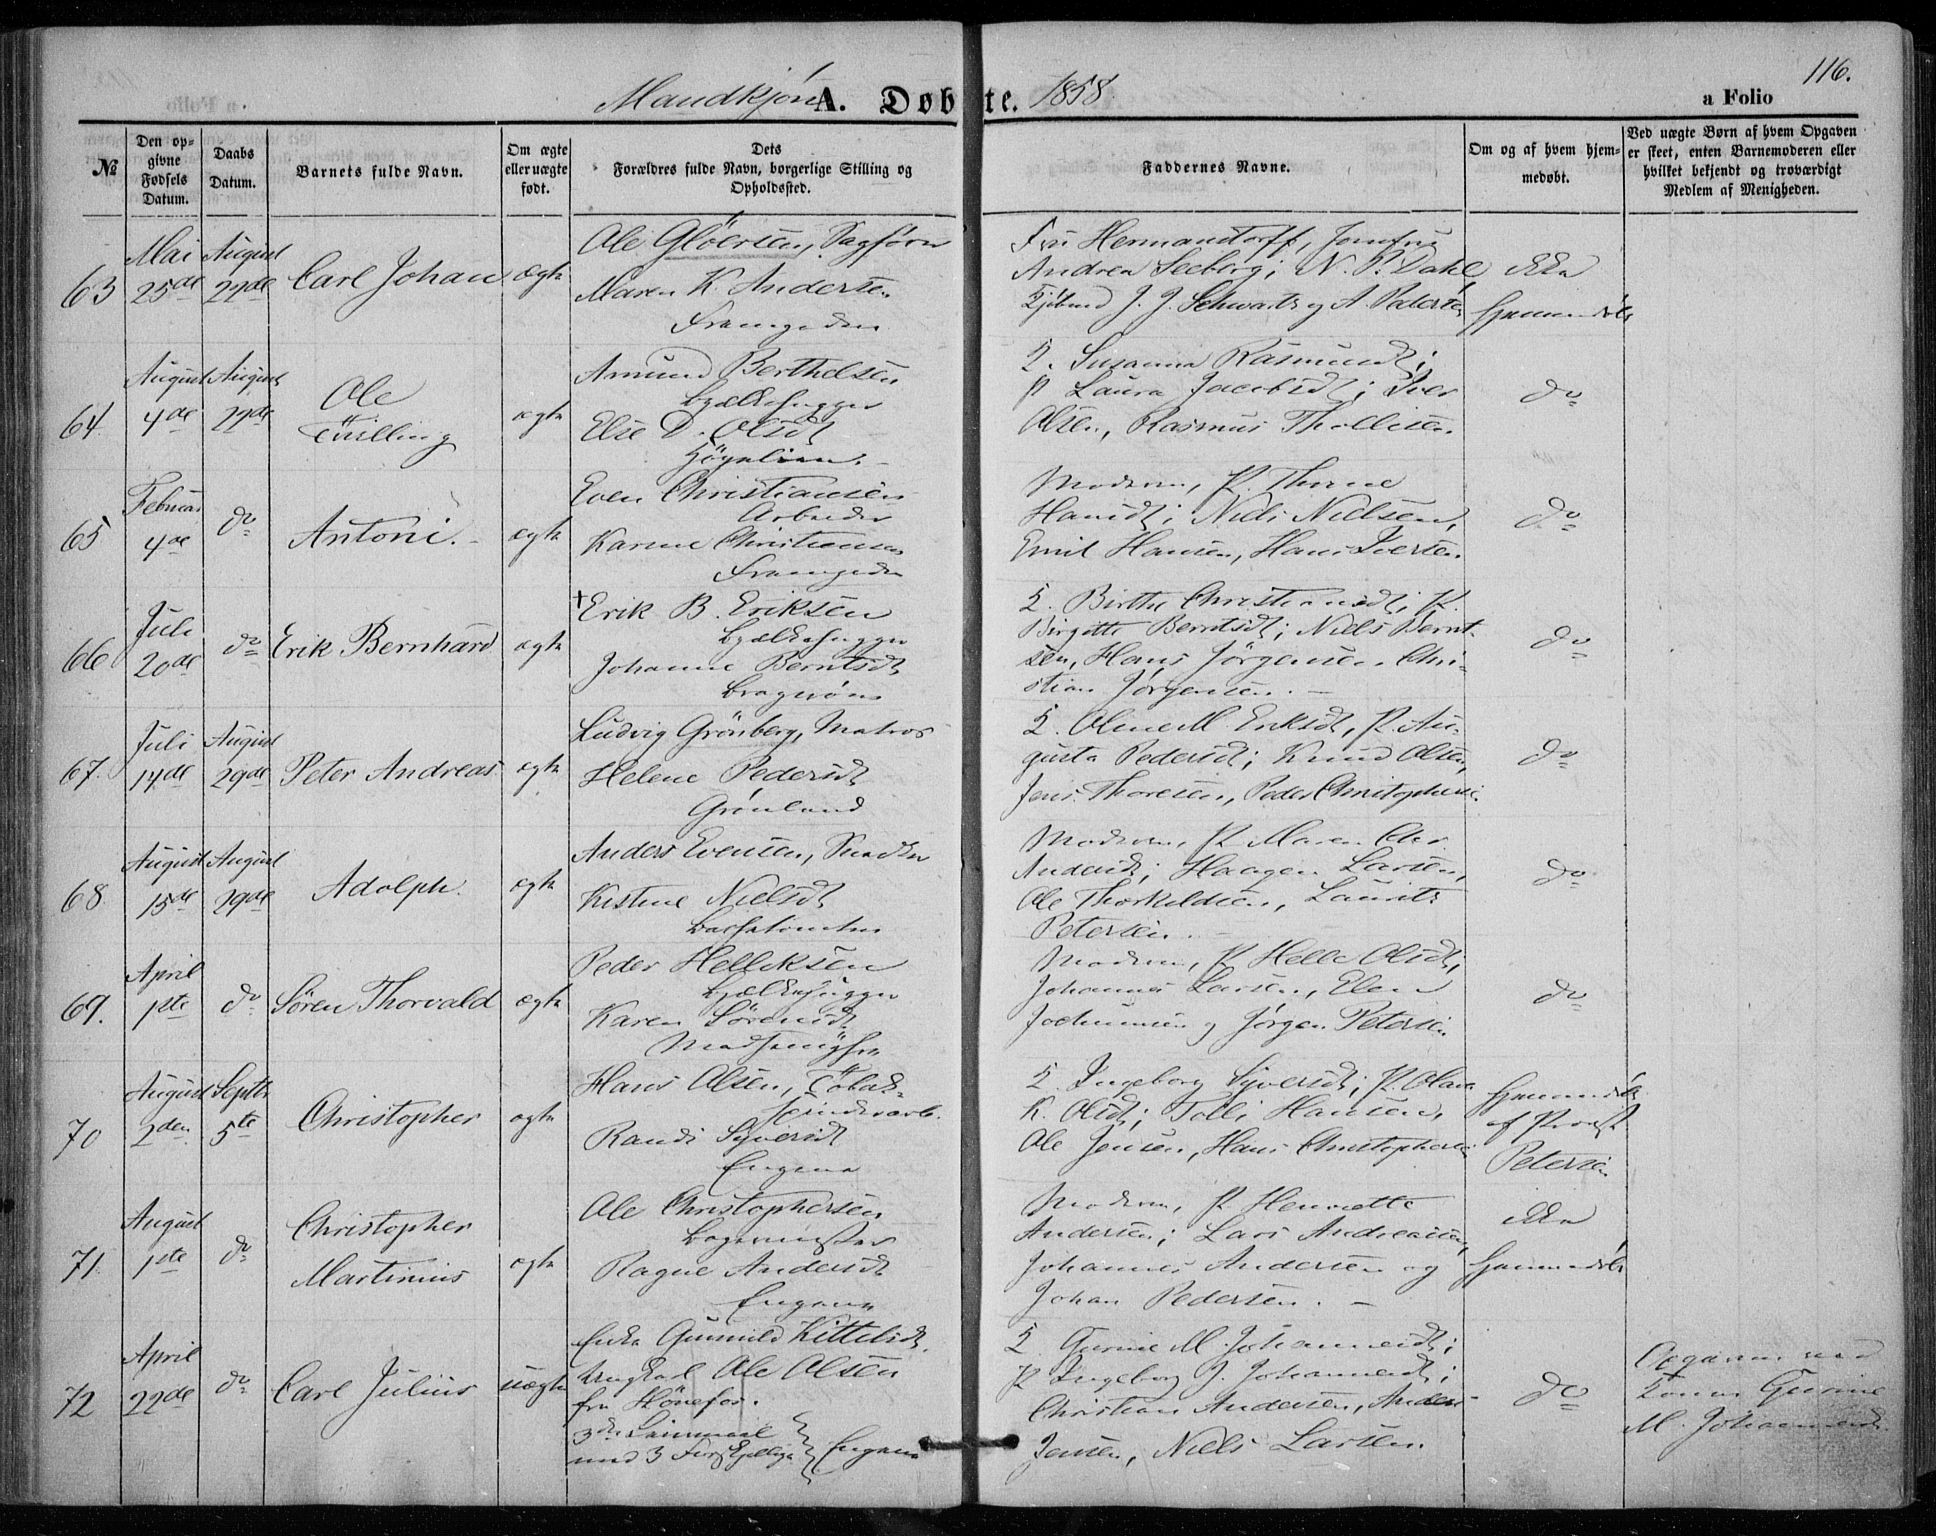 116.
Mandkjøn A. Døbte. 1858.
a Folio
№
Den op-
givne
Fødsels
Datum.
Daabs
Datum.
Barnets fulde Navn.
Om ægte
eller uægte
født.
Dets
Forældres fulde Navn, borgerlige Stilling og
Opholdssted.
Faddernes Navne.
Om og af hvem hjem-
medøbt.
Ved uægte Børn af hvem Opgaven
er skeet, enten Barnemoderen eller
hvilket bekjendt og troværdigt
Medlem af Menigheden.
63
Mai
25de
August
22de
Carl Johan
ægte
Ole Glöersen, Sagfører
Maren K. Andersen
Fru Hermanstorff, Jomfru
Andrea Seeberg; N. P. Dahl,
J. J. Schwartz og A. Pedersen
ikke
hjemmedøbt
64.
August
4de
August
22de
Ole
Tvilling
ægte
Amund Berthelsen
Bjelkehugger
Else D. Olsdt
2. Susanna Rasmusdt;
P Laura Jacobsdt; Iver
Olsen, Rasmus Thollisen.
do
65
Februar
4de
do
Antoni.
ægte
Even Christiansen
Arbeider
Karine Christiansen
Moderen, P. Thrine
Hansdt; Niels Nielsen,
Emil Hansen, Hans Iversen.
do
66
Juli
20de
do
Erik Bernhard
ægte
Erik B. Eriksen
Bjelkehugger
Johanne Berntsdt
Bragerøen
2. Birthe Christiansdt; P.
Birgitte Berntsdt; Niels Bernt-
sen, Hans Jörgensen, Chri-
stian Jørgensen.
do
67.
Juli
14de
August
29de
Peter Andreas
ægte
Ludvig Grönberg, Matros
Helene Pedersdt
Grönland
2. Oline M. Eriksdt, P. Au-
gusta Pedersdt; Knud Olsen,
Jens Thoresen, Peder Christophersen.
do
68
August
15de
August
29de
Adolph.
ægte
Anders Evensen, Snedker
Kistine Nielsdt
Moderen, P Maren Chr.
Andersdt; Haagen Larsen,
Ole Thorkildsen, Laurits
Petersen.
do
69.
April
1ste
do
Sören Thorvald
ægte
Peder Helliksen
Bjelkehugger
Karen Sörensdt
Moderen, P Helle Olsdt;
Johannes Larsen, Elen
Jochumsen og Jørgen Petersen.
do
70
August
2den
Septbr
5te
Christopher
ægte
Hans Olsen, Tobak-
spinderarb.
Randi Syversdt
Engene
2. Ingeborg Syversdt; P. Olava
K. Olsdt; Tolli Hansen,
Ole Jensen, Hans Christophersen
Hjemmedøbt
af Provst
Petersen
71.
August
1ste
do
Christopher
Martinius
ægte
Ole Christophersen
Bagermester
Ragne Andersdt
Engene
Moderen, P Henriette
Andersen; Lars Andreassen,
Johannes Andersen og
Johan Pedersen.
ikke
hjemmedøbt
72
April
22de
do
Carl Julius
uægte
Enke Gunnild Kittelsdt.
Ungkarl Ole Olsen
fra Hönefos.
3die Leiermaal
med 3 Forskjellige
Engene
2. Gurine M. Johannesdt;
P Ingeborg J. Johannesdt;
Christian Andersen, Anders
Jensen, Niels Larsen.
do
Opgaven ved
Konen Gurine
M. Johannesdt.